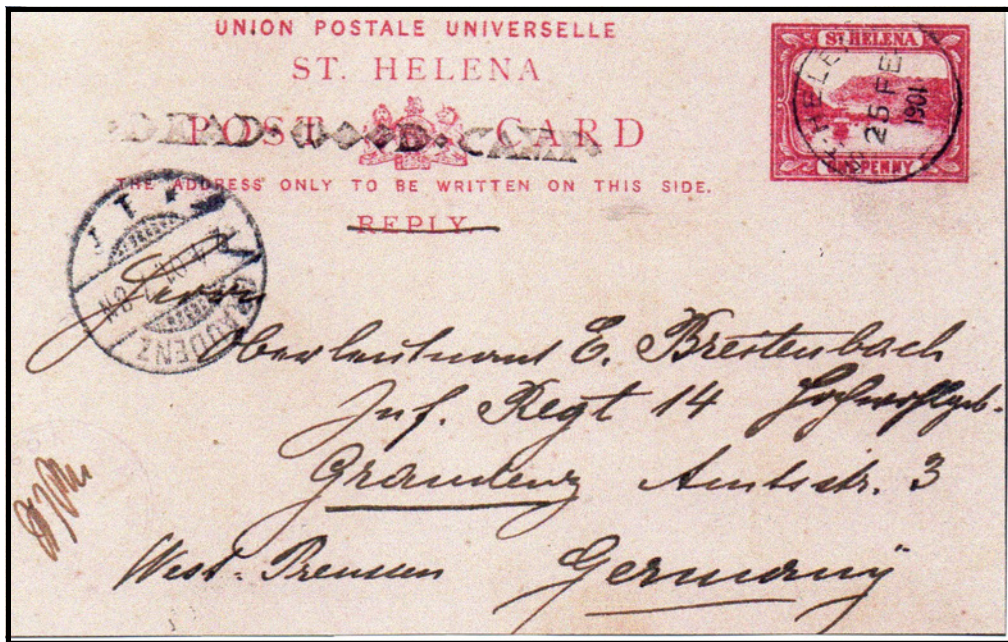 UNION POSTALE UNIVERSELLE
ST. HELENA
POST CARD
DEAD-WOOD-CAMP
THE ADDRESS ONLY TO BE WRITTEN ON THIS SIDE.
REPLY.
ST HELENA
ONE PENNY
ST. HELENA
25 FE
1901
GRAUDENZ
Herrn
Oberleutnant E. Breitenbach
Inf. Regt 14 Hochwohlgeb.
Graudenz Amtsstr. 3
West-Preussen Germanÿ